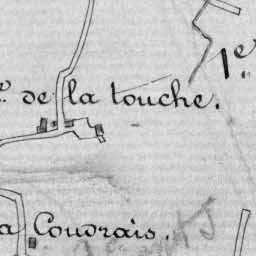 1e
de la touche.
a Coudrais.